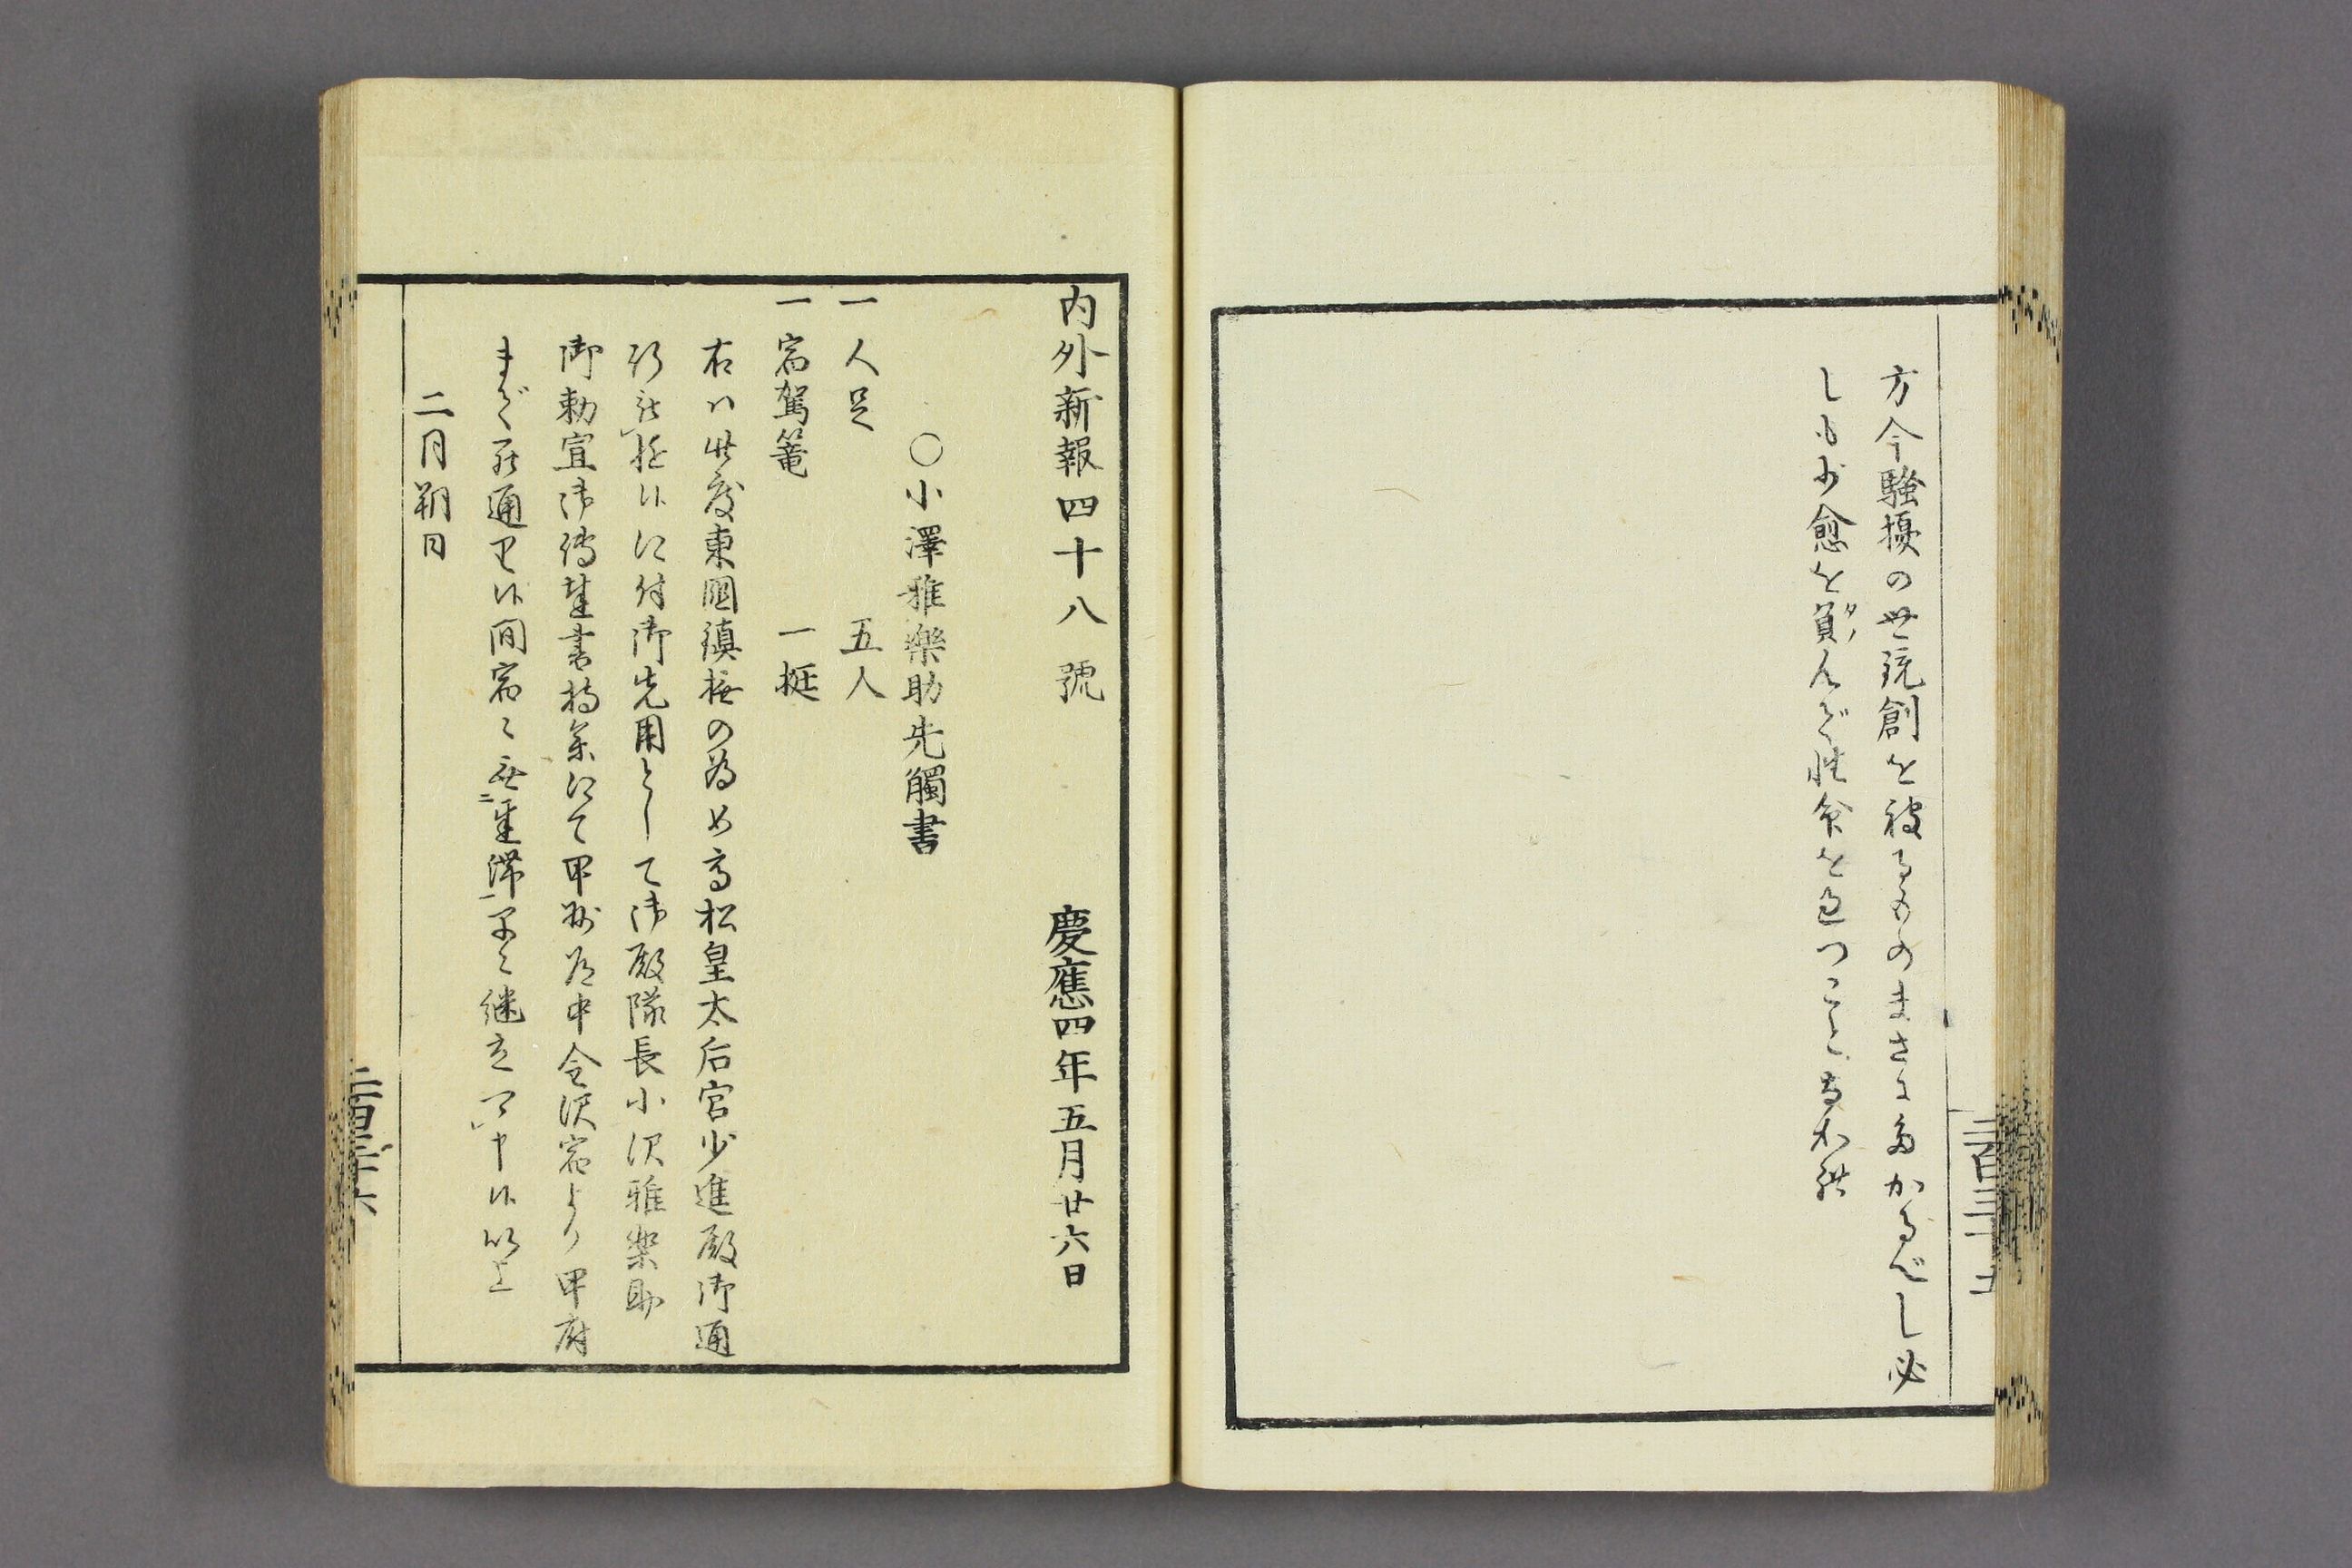 方今騒擾の世銃創を被るものまさに多かるべし必
しも少愈を負んで性命を過つことなかれ
三百三十五
内外新報四十八號 慶應四年五月廿六日
〇小澤雅樂助先觸書
一 人足 五人
一 宿駕篭 一挺
右ハ此度東國鎮撫の為め高松皇太后宮少進殿御通
行被遊候に付御先用として御殿隊長小沢雅楽助
御勅宣御傳達書持参にて甲州道中金沢宿より甲府
まで罷通申候間宿々無遅滞早々継立可申候以上
二月朔日